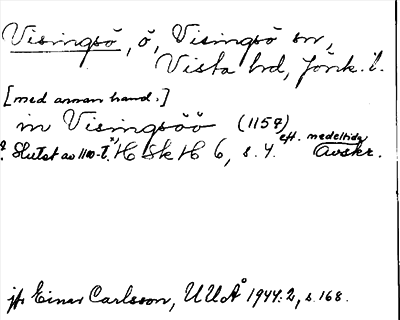 Visingsö, ö, Visingsö sn,
Vista hd, Jönk. l.
[med annan hand.]
in Visingsöö (1157)
eft. medeltida
? Slutet av 1100-t. H Sk H 6, s. 4. Avskr.
jfr Einar Carlsson, UUÅ 1944:2, s. 168.